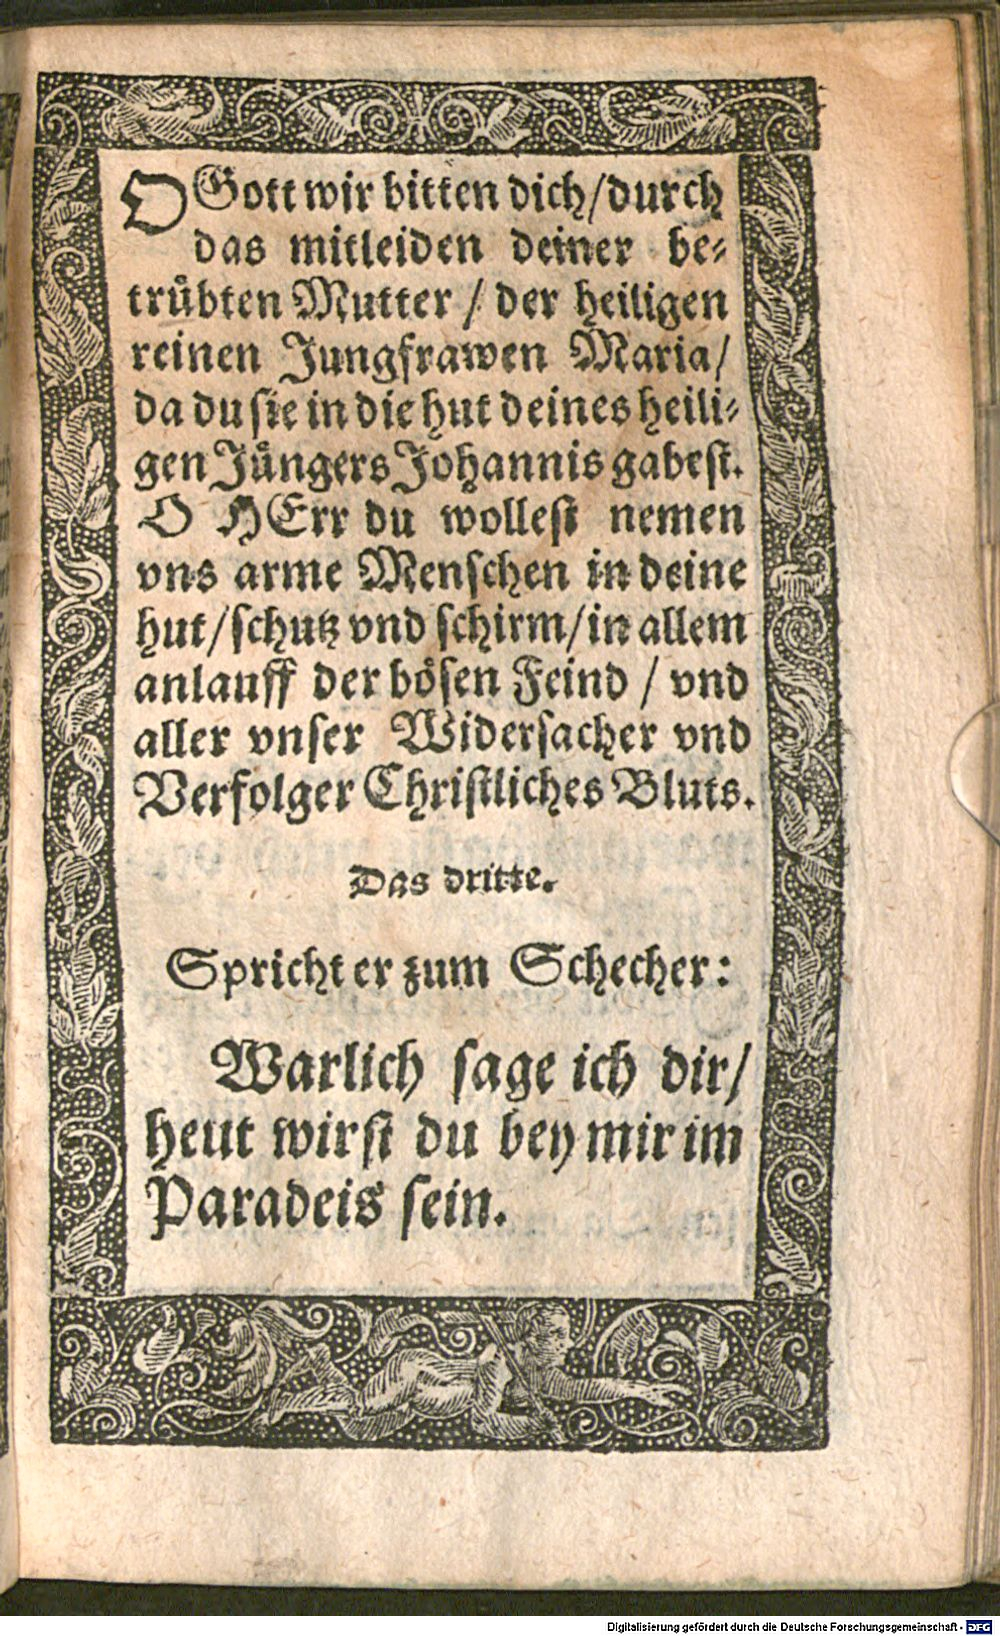 O Gott wir bitten dich/durch
das mitleiden deiner be⸗
trůbten Mutter / der heiligen
reinen Jungfrawen Maria/
da du sie in die hut deines heili⸗
gen Jůngers Johannis gabest.
O HErr du wollest nemen
vns arme Menschen in deine
hut/schutz vnd schirm/in allem
anlauff der bösen Feind / vnd
aller vnser Widersacher vnd
Verfolger Christliches Bluts.
Das dritte.
Spricht er zum Schecher:
Warlich sage ich dir/
heut wirst du bey mir im
Paradeis sein.
Digitalisierung gefördert durch die Deutsche Forschungsgemeinschaft - DFG